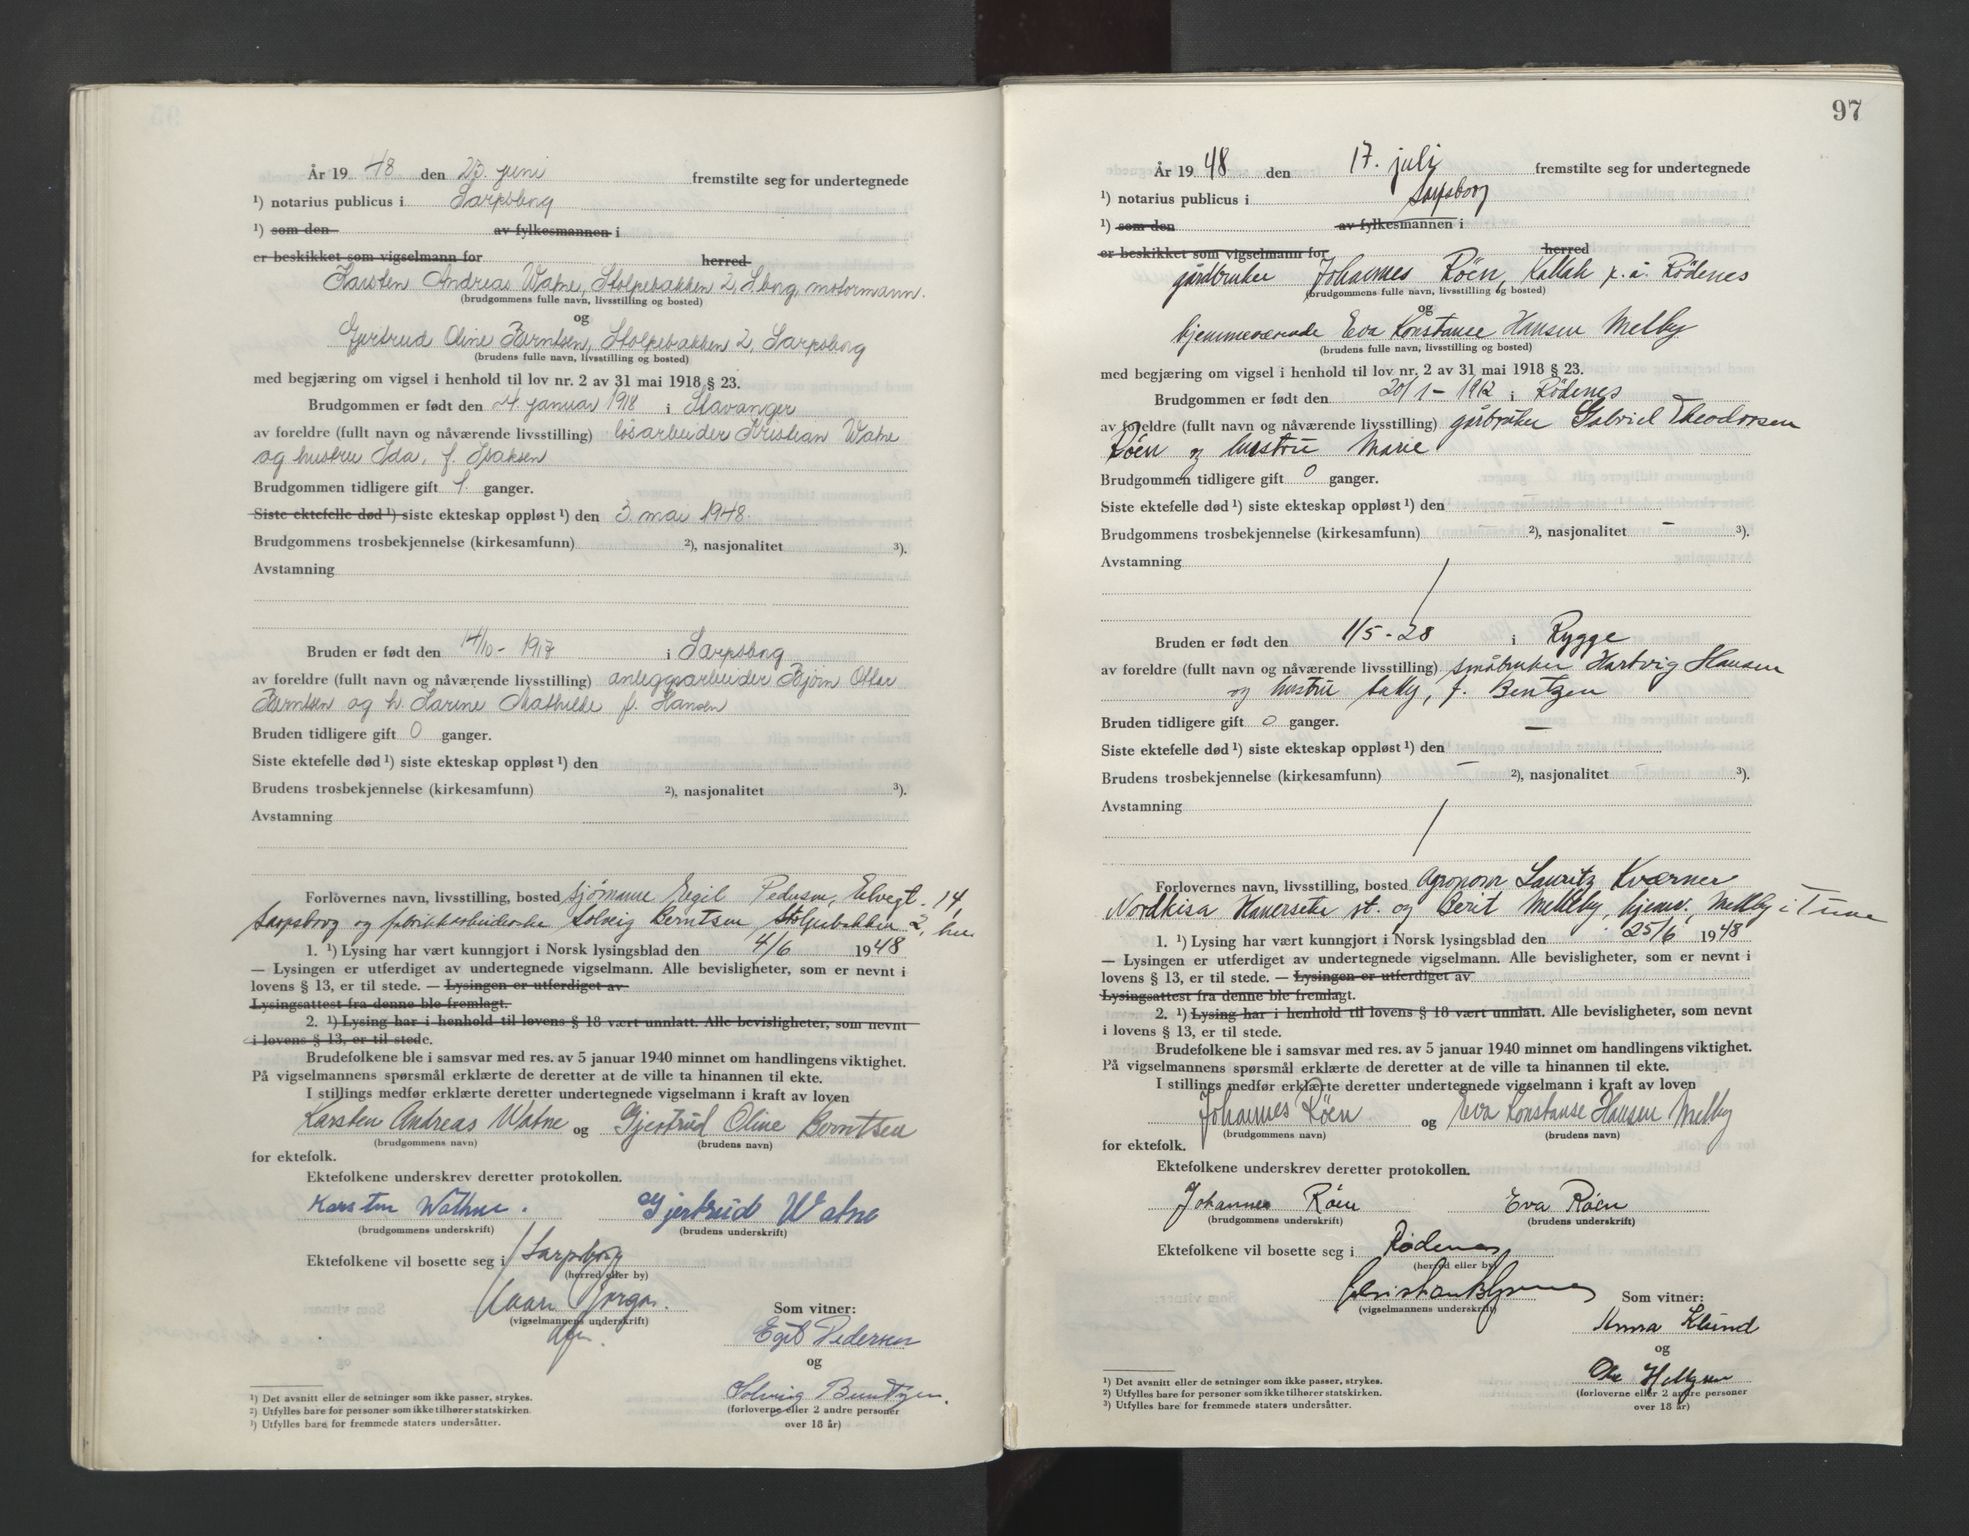 År 19 48 den 23. juni fremstilte seg for undertegnede
¹) notarius publicus i Sarpsborg
¹) som den av fylkesmannen i
er beskikket som vigselmann for herred
Karsten Andreas Watne, Stolpebakken 2, S.borg, motormann.
(brudgommens fulle navn, livsstilling og bosted)
og
Gjertrud Oline Berntsen, Stolpebakken 2, Sarpsborg
(brudens fulle navn, livsstilling og bosted)
med begjæring om vigsel i henhold til lov nr. 2 av 31 mai 1918 § 23.
Brudgommen er født den 24 januar 1918 i Stavanger
av foreldre (fullt navn og nåværende livsstilling) løsarbeider Kristian Watne
og hustru Ida, f. Isaksen
Brudgommen tidligere gift 1. ganger.
Siste ektefelle død ¹) siste ekteskap oppløst ¹) den 3. mai 1948.
Brudgommens trosbekjennelse (kirkesamfunn) ²), nasjonalitet ³).
Avstamning
Bruden er født den 14/10 - 1917 i Sarpsborg
av foreldre (fullt navn og nåværende livsstilling) anleggsarbeider Bjørn Ottar
Berntsen og h. Sarine Mathilde f. Hansen
Bruden tidligere gift 0 ganger.
Siste ektefelle død ¹) siste ekteskap oppløst ¹) den
Brudens trosbekjennelse (kirkesamfunn) ²), nasjonalitet ³).
Avstamning
Forlovernes navn, livsstilling, bosted sjømann Egil Pedersen, Elvegt. 14,
Sarpsborg og fabrikkarbeiderske Solveig Berntsen, Stolpebakken 2, her.
1. ¹) Lysing har vært kunngjort i Norsk lysingsblad den 4/6 1948
— Lysingen er utferdiget av undertegnede vigselmann. Alle bevisligheter, som er nevnt i
lovens § 13, er til stede. — Lysingen er utferdiget av
Lysingsattest fra denne ble fremlagt.
2. ¹) Lysing har i henhold til lovens § 18 vært unnlatt. Alle bevisligheter, som nevnt
i lovens § 13, er til stede.
Brudefolkene ble i samsvar med res. av 5 januar 1940 minnet om handlingens viktighet.
På vigselmannens spørsmål erklærte de deretter at de ville ta hinannen til ekte.
I stillings medfør erklærte deretter undertegnede vigselmann i kraft av loven
Karsten Andreas Watne og Gjertrud Oline Berntsen
(brudgommens navn) (brudens navn)
for ektefolk.
Ektefolkene underskrev deretter protokollen.
Karsten Wathne. Gjertrud Watne
(brudgommens underskrift) (brudens underskrift)
Ektefolkene vil bosette seg i Sarpsborg
(herred eller by)
Som vitner:
(vigselmannens underskrift)
Egil Pedersen
og
Solveig Berntzen.
(forloverne eller 2 andre personer
over 18 år)
¹) Det avsnitt eller de setninger som ikke passer, strykes.
²) Utfylles bare for personer som ikke tilhører statskirken.
³) Utfylles bare for fremmede staters undersåtter.
97
År 19 48 den 17. juli fremstilte seg for undertegnede
¹) notarius publicus i Sarpsborg
¹) som den av fylkesmannen i
er beskikket som vigselmann for herred
gårdbruker Johannes Røen, Kallak p.å. Rödenes
(brudgommens fulle navn, livsstilling og bosted)
og
hjemmeværende Eva Konstanse Hansen Melby
(brudens fulle navn, livsstilling og bosted)
med begjæring om vigsel i henhold til lov nr. 2 av 31 mai 1918 § 23.
Brudgommen er født den 20/1 - 1912 i Rödenes
av foreldre (fullt navn og nåværende livsstilling) gårbruker Gabriel Theodorsen
Röen og hustru Marie
Brudgommen tidligere gift 0 ganger.
Siste ektefelle død ¹) siste ekteskap oppløst ¹) den –
Brudgommens trosbekjennelse (kirkesamfunn) – ²), nasjonalitet – ³).
Avstamning
Bruden er født den 1/5 - 28 i Rygge
av foreldre (fullt navn og nåværende livsstilling) småbruker Hartvig Hansen
og hustru Sally, f. Bentzen
Bruden tidligere gift 0 ganger.
Siste ektefelle død ¹) siste ekteskap oppløst ¹) den –
Brudens trosbekjennelse (kirkesamfunn) – ²), nasjonalitet – ³).
Avstamning
Forlovernes navn, livsstilling, bosted agronom Lauritz Kværner
Nordkisa Hauerseter st. og Berit Mellby, hjemv., Mellby i Tune
1. ¹) Lysing har vært kunngjort i Norsk lysingsblad den 25/6 1948
— Lysingen er utferdiget av undertegnede vigselmann. Alle bevisligheter, som er nevnt i
lovens § 13, er til stede. — Lysingen er utferdiget av
Lysingsattest fra denne ble fremlagt.
2. ¹) Lysing har i henhold til lovens § 18 vært unnlatt. Alle bevisligheter, som nevnt
i lovens § 13, er til stede.
Brudefolkene ble i samsvar med res. av 5 januar 1940 minnet om handlingens viktighet.
På vigselmannens spørsmål erklærte de deretter at de ville ta hinannen til ekte.
I stillings medfør erklærte deretter undertegnede vigselmann i kraft av loven
Johannes Röen og Eva Konstanse Hansen Melby
(brudgommens navn) (brudens navn)
for ektefolk.
Ektefolkene underskrev deretter protokollen.
Johannes Röen Eva Röen
(brudgommens underskrift) (brudens underskrift)
Ektefolkene vil bosette seg i Rödenes
(herred eller by)
Som vitner:
(vigselmannens underskrift)
Anna Klund
og
(forloverne eller 2 andre personer
over 18 år)
¹) Det avsnitt eller de setninger som ikke passer, strykes.
²) Utfylles bare for personer som ikke tilhører statskirken.
³) Utfylles bare for fremmede staters undersåtter.